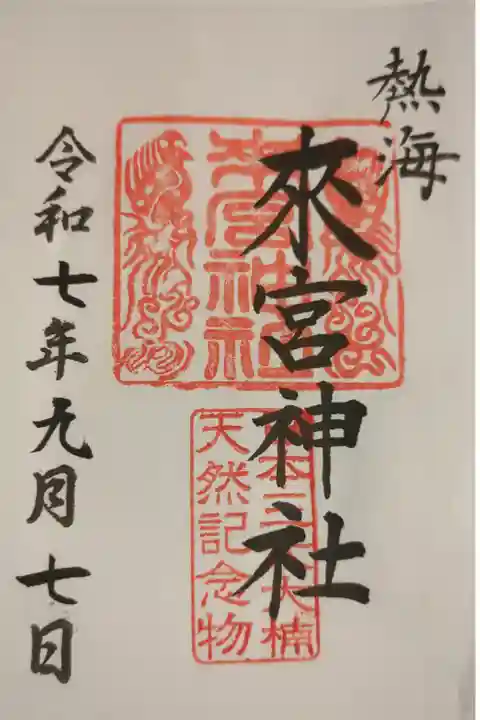 熱海
來宮神社
來宮神社
天然記念物
令和七年九月七日